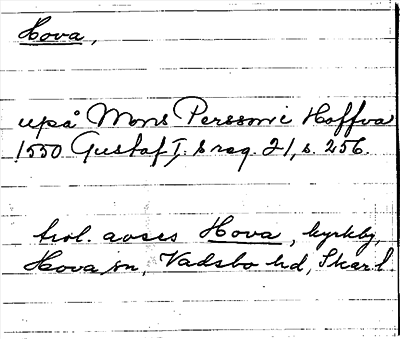 Hova,
upå Mons Perssoni Hoffva
1550 Gustaf I:s reg. 21, s. 256.
trol. avses Hova, kyrkby,
Hova sn, Vadsbo hd, Skar.l.